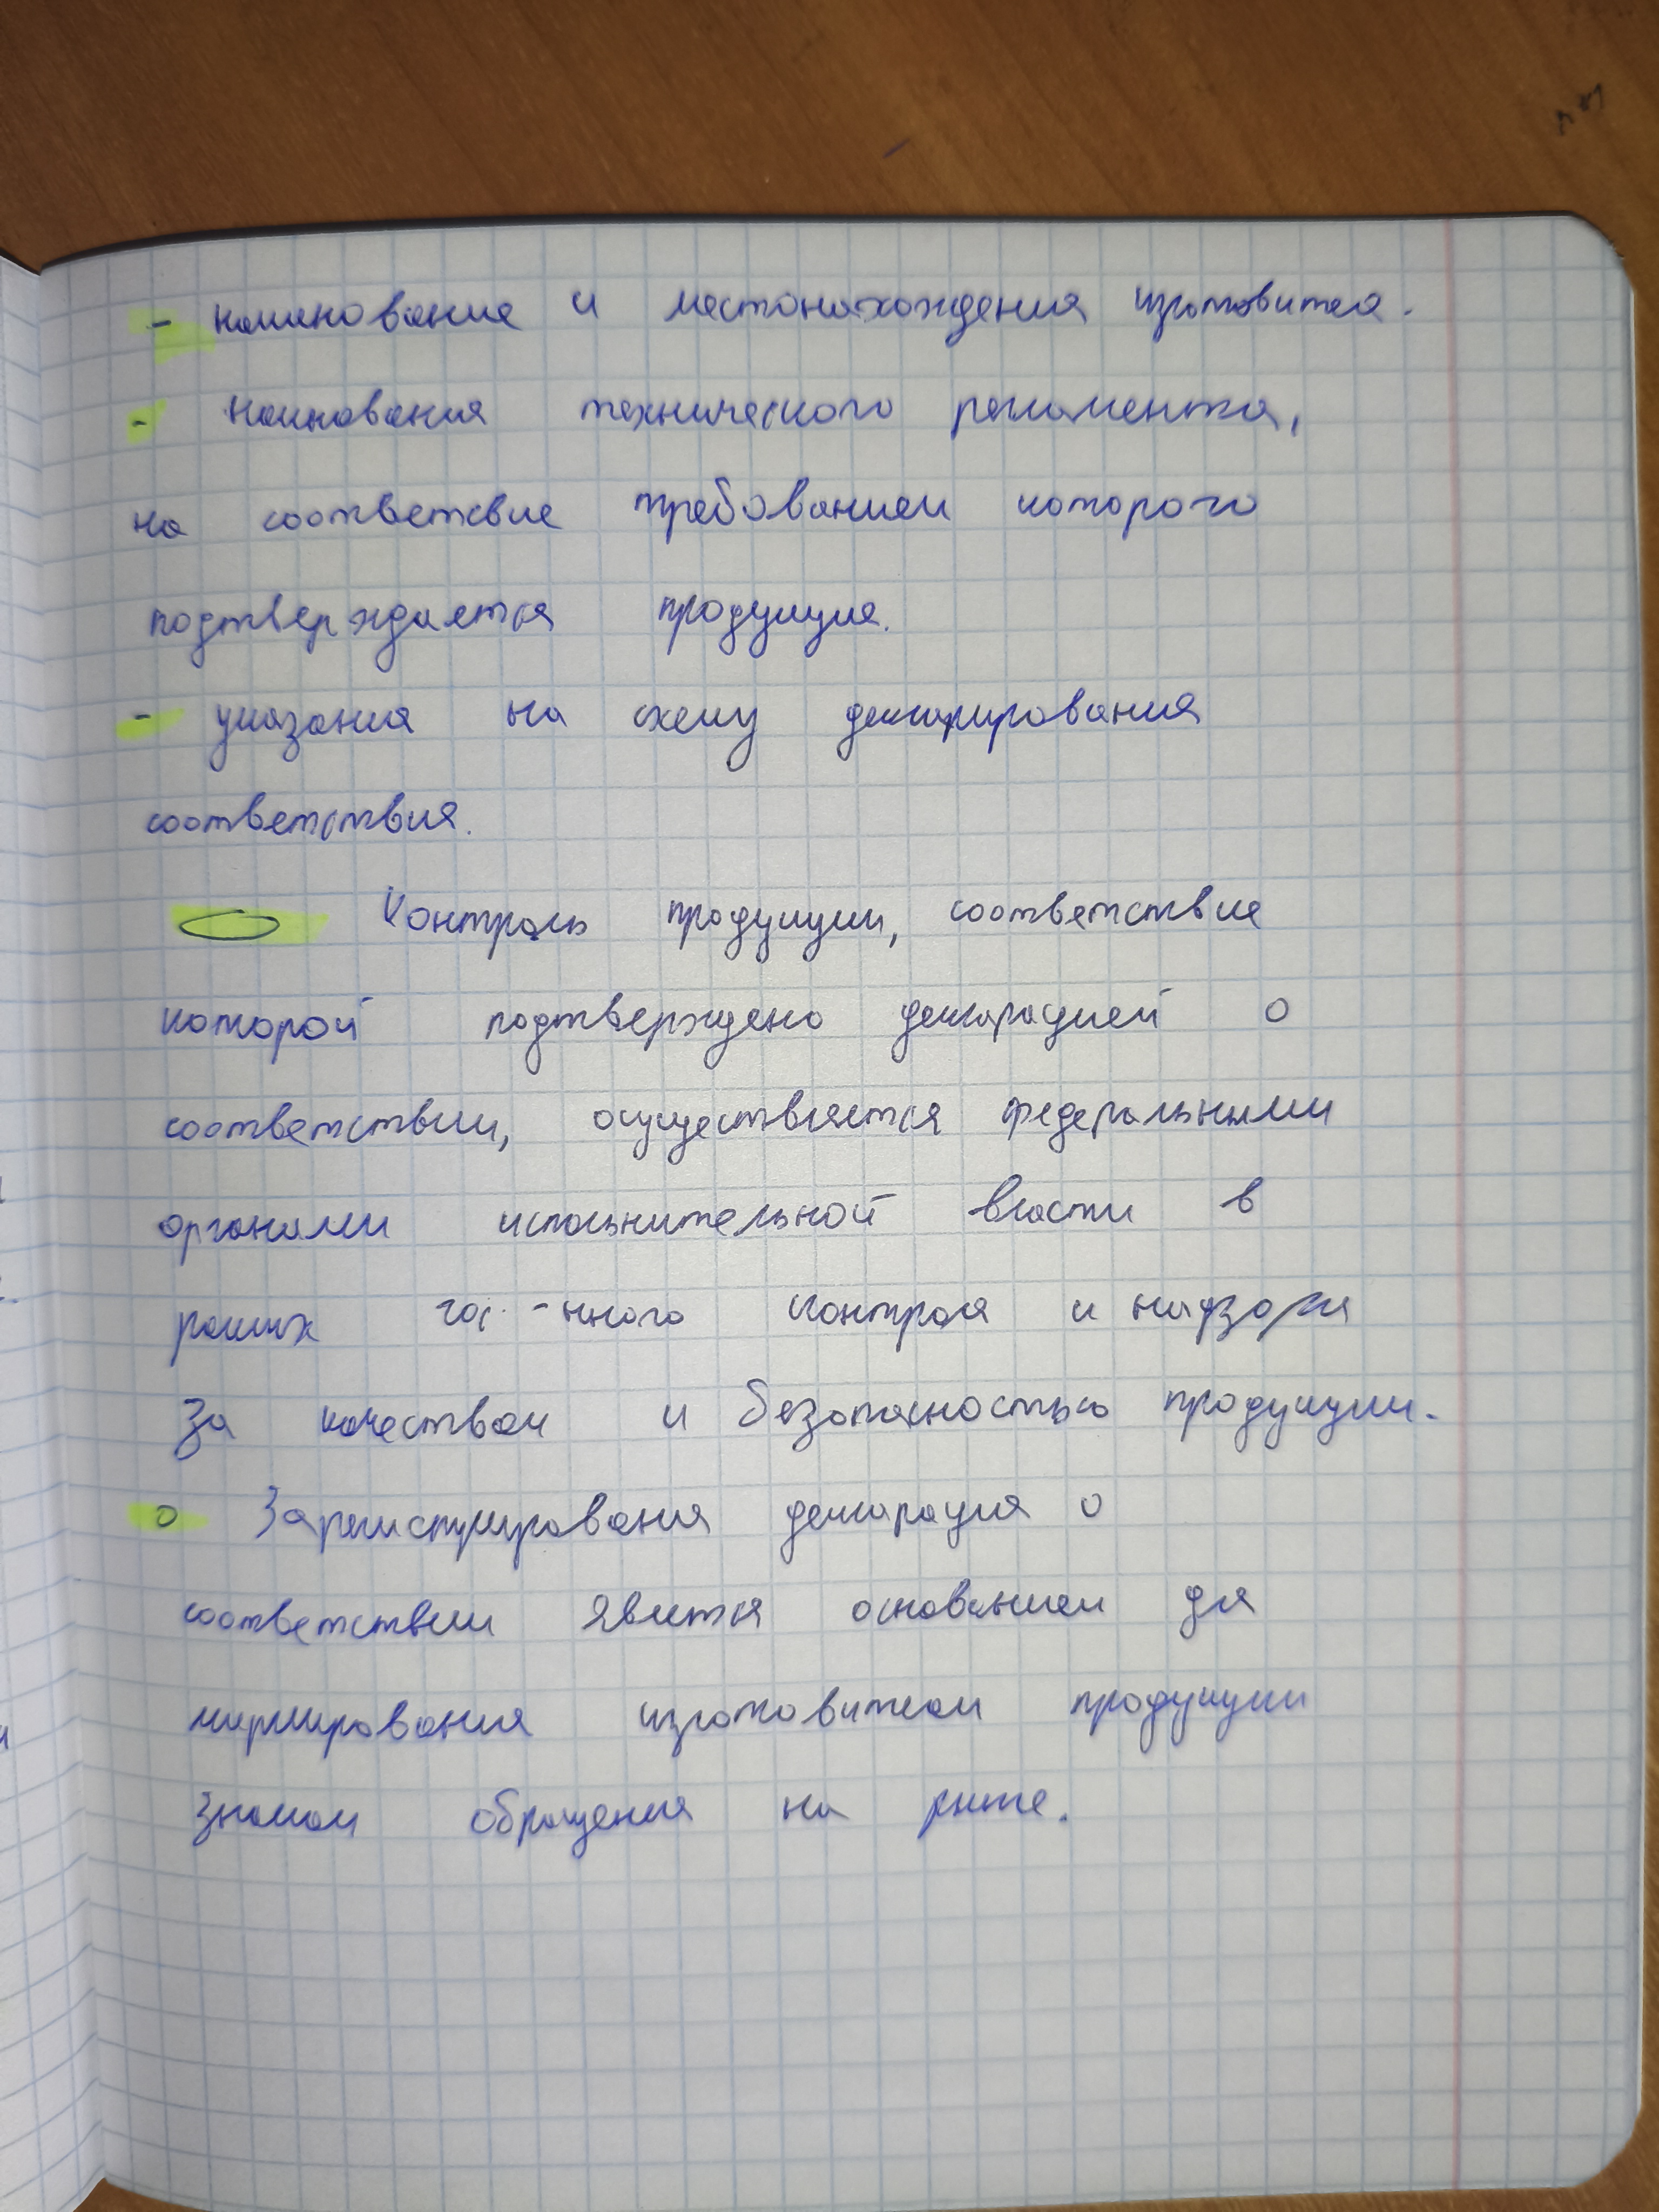 - наминование и местонахождения изготовителя.
- Наинования технического регламента,
на соответсвие требованием которого
подтверждается продукция.
- указания на схему декларирования
соответствия.
Контроль продукции, соответствие
которой подтверждено декларацией о
соответствии, осуществляется федеральными
органами исполнительной власти в
рамких гос.-нного контроля и надзора
за качеством и безопасностью продукции.
о Зарегистрирования декларация о
соответствии является основанием для
маркирования изготовителем продукции
знаком обращения на рынке.